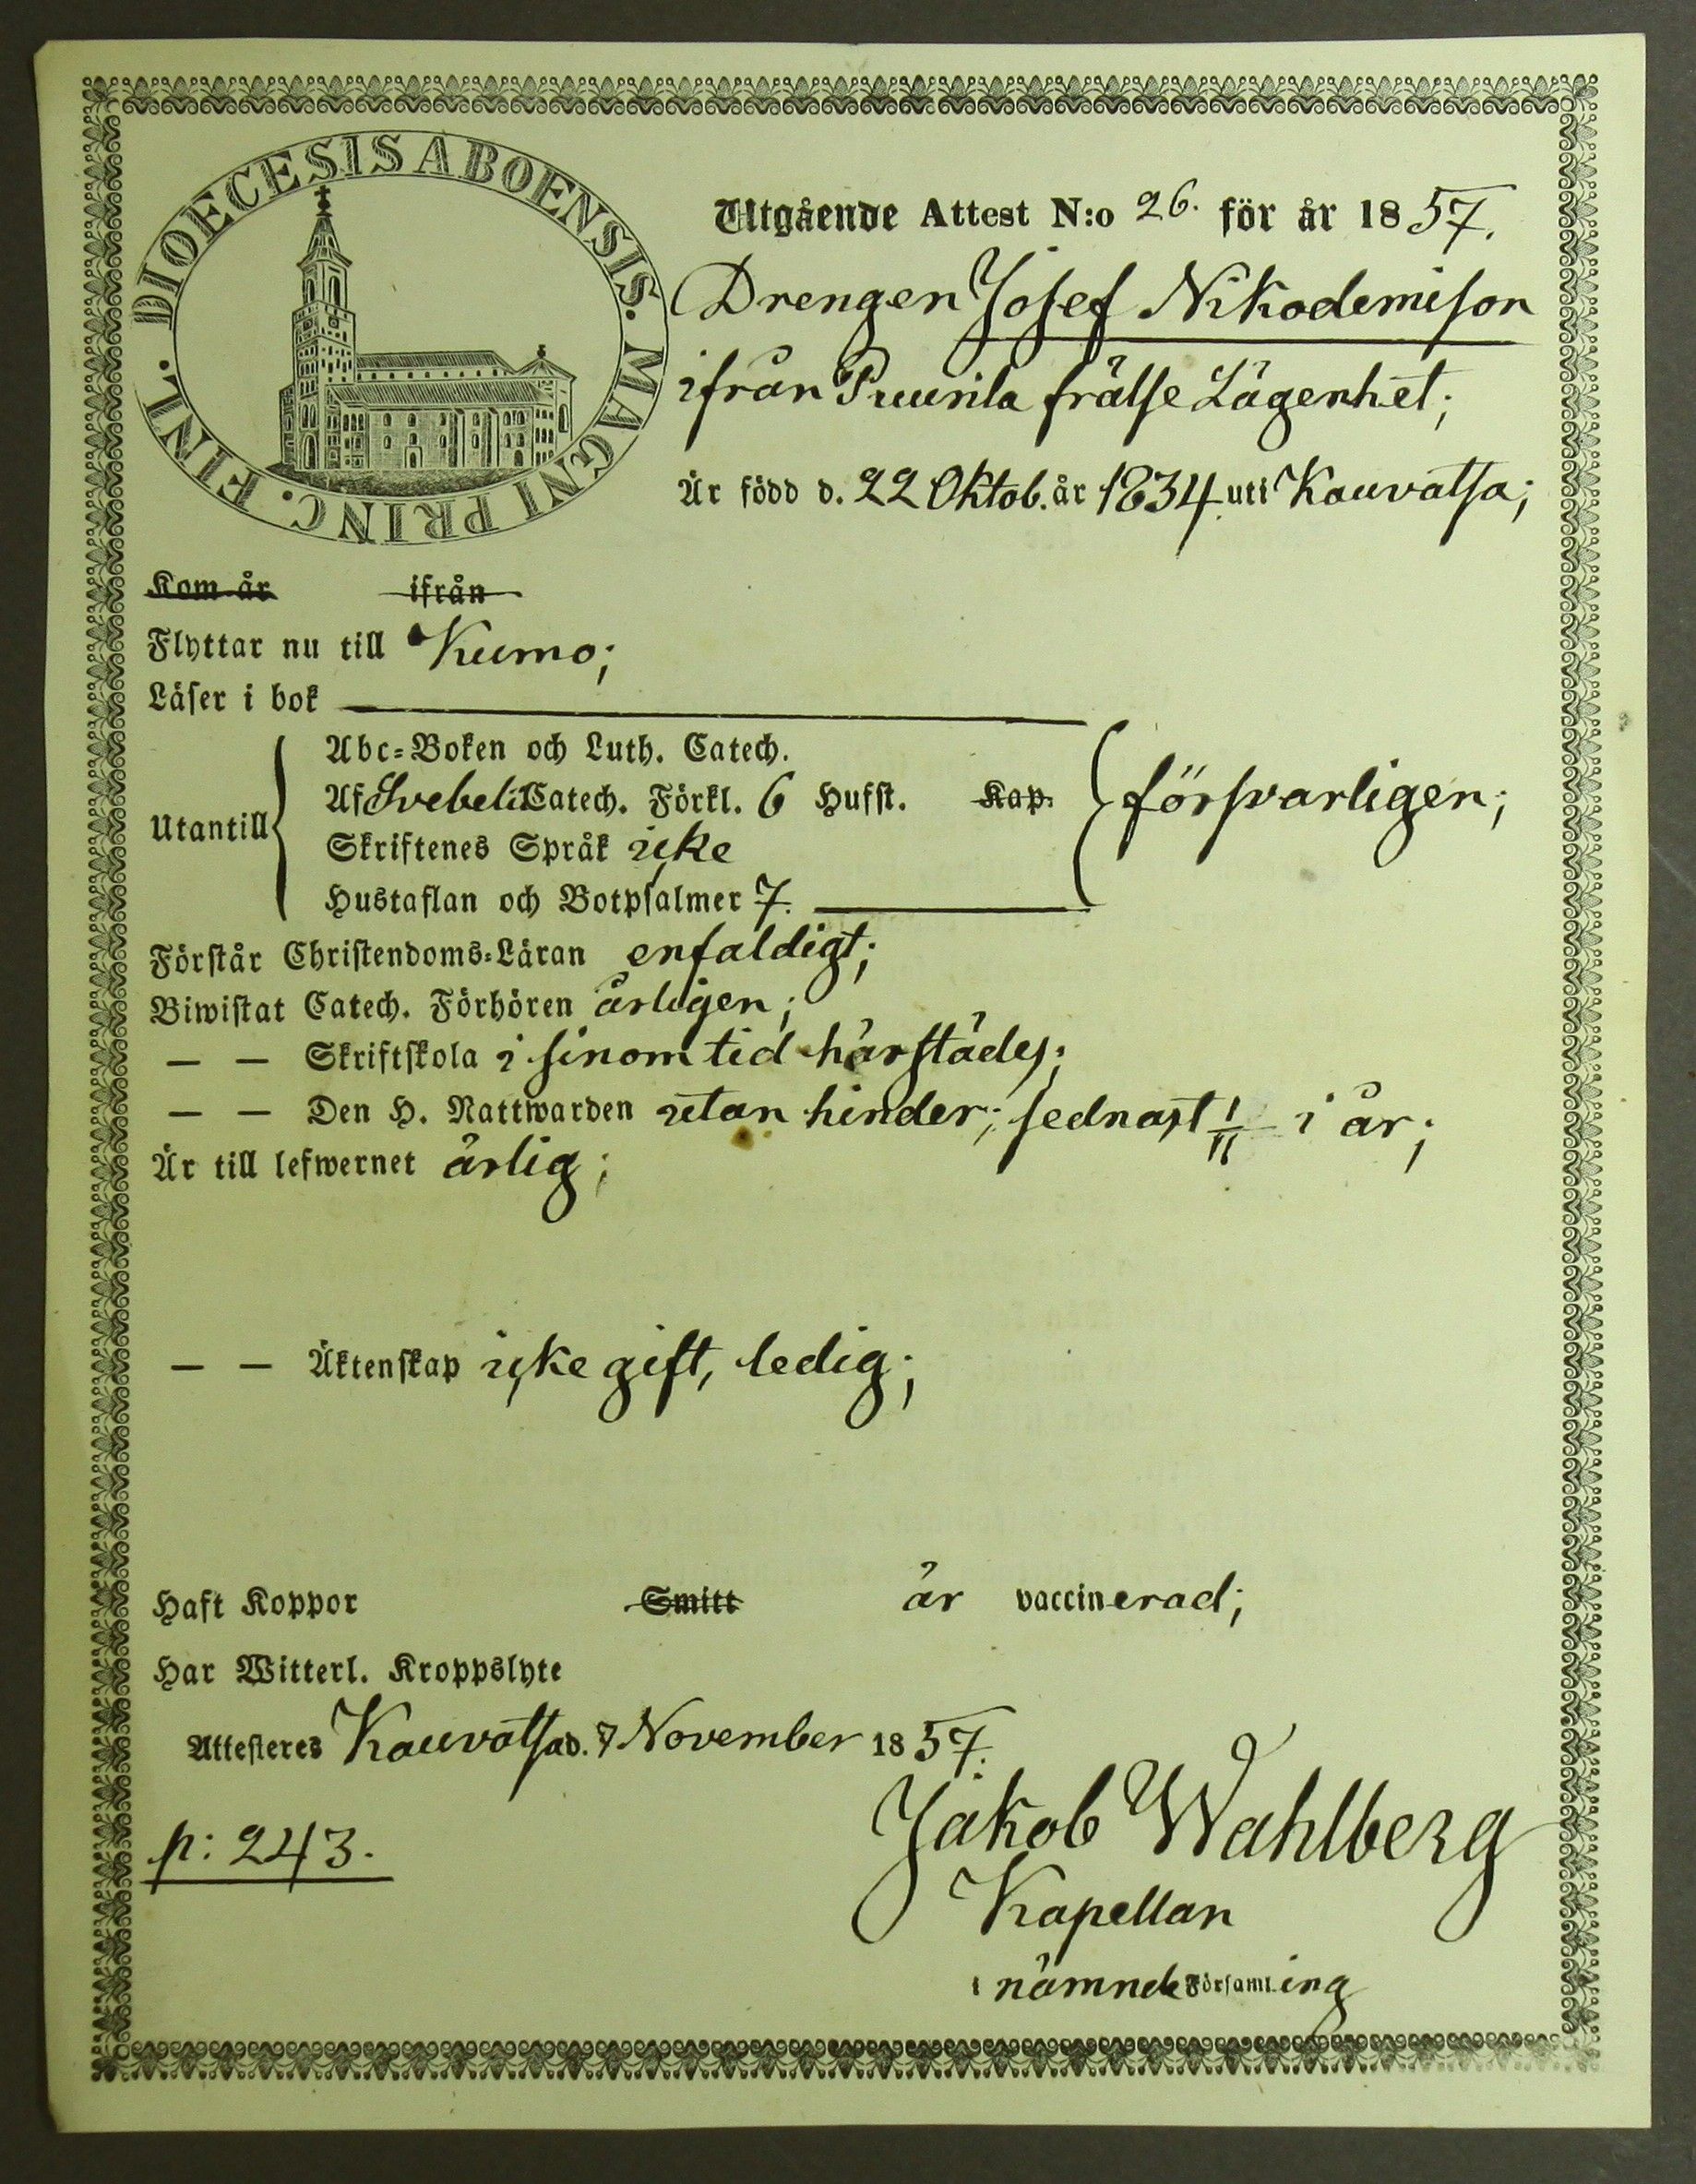 DIOECESIS ABOENSIS. MAGNI PRINC. FINL.
Utgående Attest N:o 26. för år 1857.
Drengen Josef Nikodemison
ifrån Puurila frälse Lägenhet;
Är född d. 22 Oktob. år 1834 uti Kauvatsa;
Kom år ifrån
Flyttar nu till Kumo;
Läser i bok
Abc-Boken och Luth. Catech.
Af Svebeli Catech. Förkl. 6 Hufst. Kap. försvarligen;
Utantill
Skriftenes Språk icke
Hustaflan och Botpsalmer 7.
Förstår Christendoms-Läran enfaldigt;
Biwistat Catech. Förhören årligen;
— — Skriftskola i sinom tid härstädes;
— — Den H. Nattwarden utan hinder; sednast 1/11 i år;
Är till lefwernet ärlig;
— — Äktenskap icke gift, ledig;
Haft Koppor Smitt är vaccinerad;
Har Witterl. Kroppslyte
Attesteres Kauvatsa d. 7 November 1857.
Jakob Wahlberg
p: 243.
Kapellan
i nämnde Församling